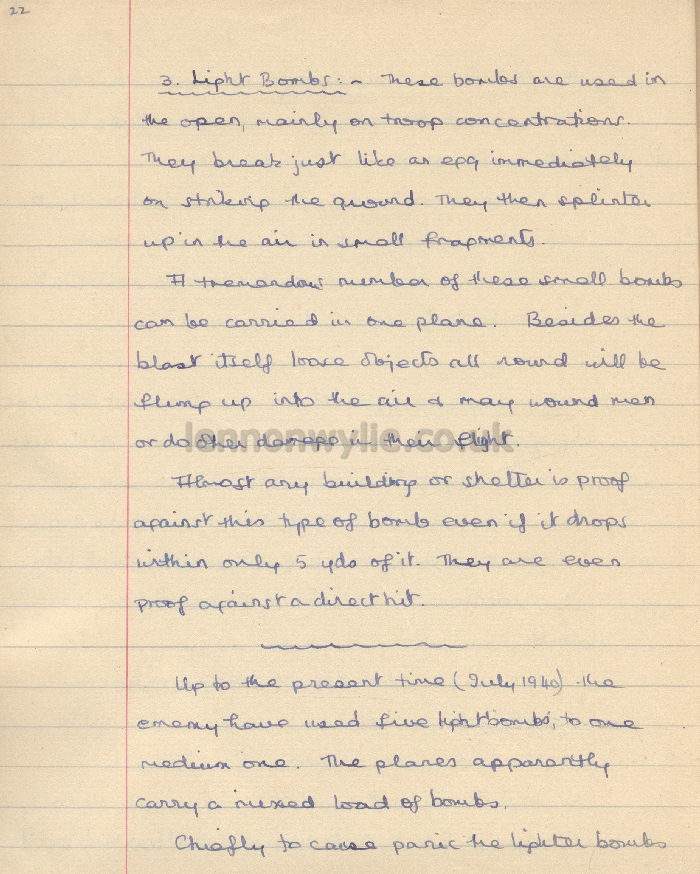 22
3. Light Bombs:- These bombs are used in
the open, mainly on troop concentrations.
They break just like an egg immediately
on striking the ground. They then splinter
up in the air in small fragments.
A tremendous number of these small bombs
can be carried in one plane. Besides the
blast itself loose objects all round will be
flung up into the air & may wound men
or do other damage in their flight.
lennonwylie.co.uk
Almost any building or shelter is proof
against this type of bomb even if it drops
within only 5 yds of it. They are even
proof against a direct hit.
Up to the present time (July 1940) the
enemy have used five light bombs, to one
medium one. The planes apparently
carry a mixed load of bombs.
Chiefly to cause panic the lighter bombs